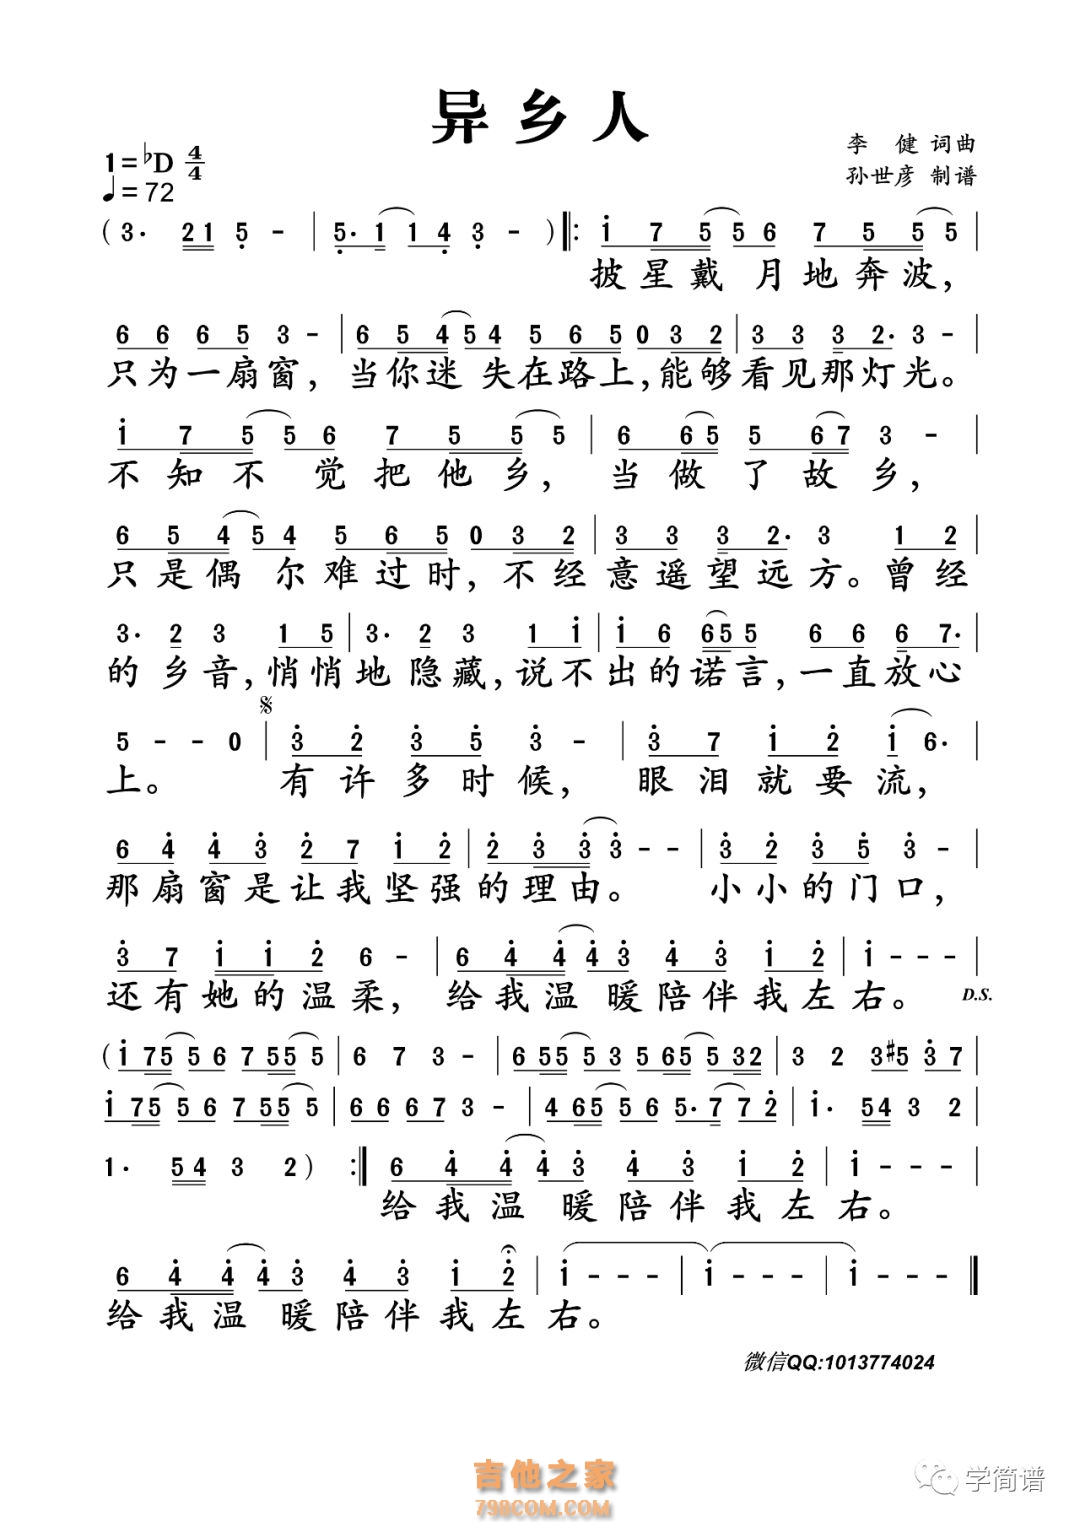 异乡人
李 健 词曲
1=♭D 4/4
孙世彦 制谱
♩=72
( 3· 21 5 - | 5· 1 1 4 3 - ) ‖: 1 7 5 5 6 7 5 5 5 |
披星戴 月地奔波，
6 6 6 5 3 - | 6 5 4 5 4 5 6 5 0 3 2 | 3 3 3 2· 3 - |
只为一扇窗，当你迷 失在路上，能够看见那灯光。
1 7 5 5 6 7 5 5 5 | 6 6 5 5 6 7 3 - |
不知不 觉把他乡， 当做了故乡，
6 5 4 5 4 5 6 5 0 3 2 | 3 3 3 2· 3 1 2 |
只是偶 尔难过时，不经意遥望远方。曾经
3· 2 3 1 5 | 3· 2 3 1 1 | 1 6 6 5 5 6 6 6 7· |
的乡音，悄悄地隐藏，说不出的诺言，一直放心
𝄋
5 - - 0 | 3 2 3 5 3 - | 3 7 1 2 1 6· |
上。 有许多时候， 眼泪就要流，
6 4 4 3 2 7 1 2 | 2 3 3 3 - - | 3 2 3 5 3 - |
那扇窗是让我坚强的理由。 小小的门口，
3 7 1 1 2 6 - | 6 4 4 4 3 4 3 1 2 | 1 - - - |
还有她的温柔， 给我温 暖陪伴我左右。 D.S.
( 1 7 5 5 6 7 5 5 5 | 6 7 3 - | 6 5 5 5 3 5 6 5 5 3 2 | 3 2 3 #5 3 7 |
1 7 5 5 6 7 5 5 5 | 6 6 6 7 3 - | 4 6 5 5 6 5· 7 7 2 | 1· 5 4 3 2 |
1· 5 4 3 2 ) :‖ 6 4 4 4 3 4 3 1 2 | 1 - - - |
给我温 暖陪伴我左右。
6 4 4 4 3 4 3 1 2 | 1 - - - | 1 - - - | 1 - - - ‖
给我温 暖陪伴我左右。
微信QQ:1013774024
吉他之家
798COM.COM
学简谱